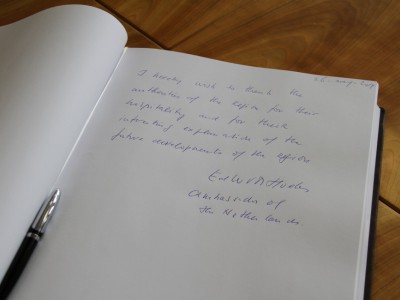 I hereby wish to thank the
authorities of the region for their
hospitality and for their
interesting explanation of the
future developments of the region
Ambassador of
the Netherlands